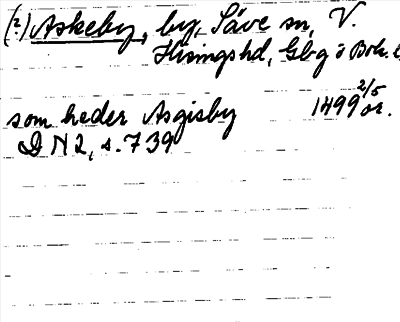 (?) Askeby, by, Säve sn, V.
Hisings hd, Gbg o Boh. l
2/5
som heder Asgisby 1499 or.
DN 2, s. 739